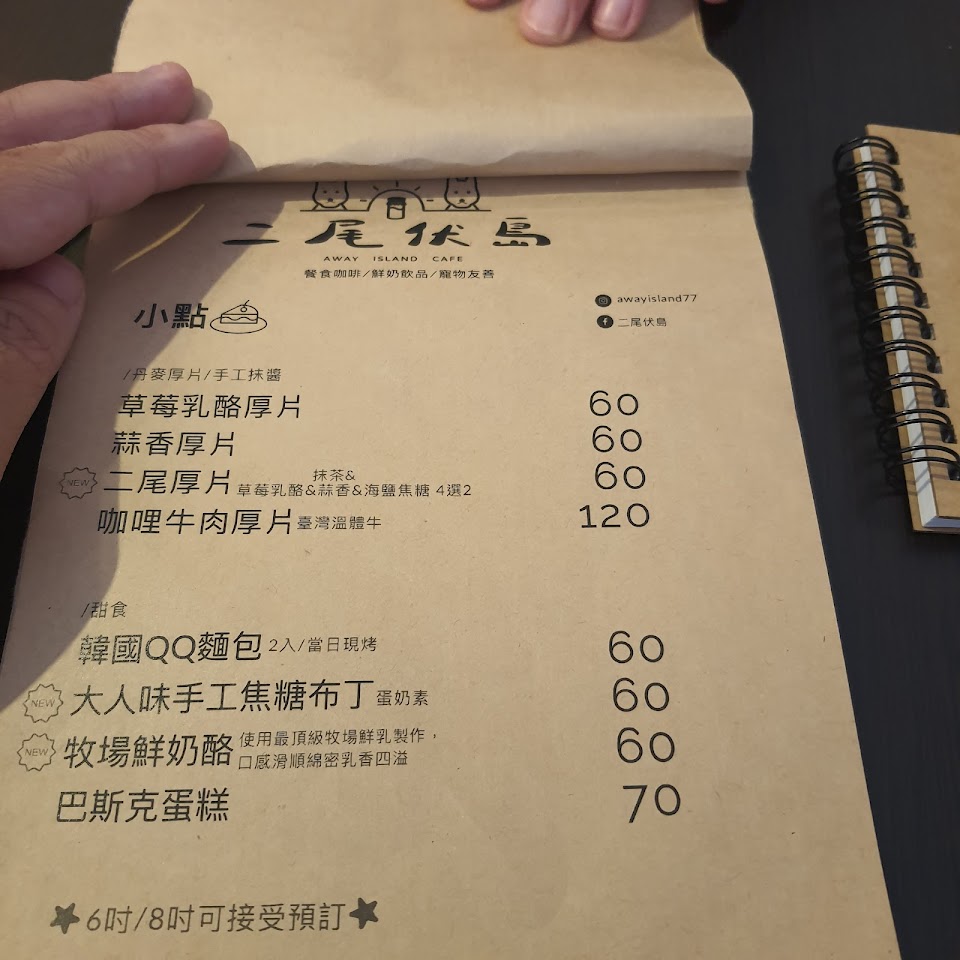 二尾伏島
AWAY ISLAND CAFE
餐食咖啡/鮮奶飲品/寵物友善
小點
awayisland77
二尾伏島
/丹麥厚片/手工抹醬
草莓乳酪厚片 60
蒜香厚片 60
NEW 二尾厚片 抹茶& 60
草莓乳酪&蒜香&海鹽焦糖 4選2
咖哩牛肉厚片 臺灣溫體牛 120
/甜食
韓國QQ麵包 2入/當日現烤 60
NEW 大人味手工焦糖布丁 蛋奶素 60
NEW 牧場鮮奶酪 使用最頂級牧場鮮乳製作， 60
口感滑順綿密乳香四溢
巴斯克蛋糕 70
★6吋/8吋可接受預訂★